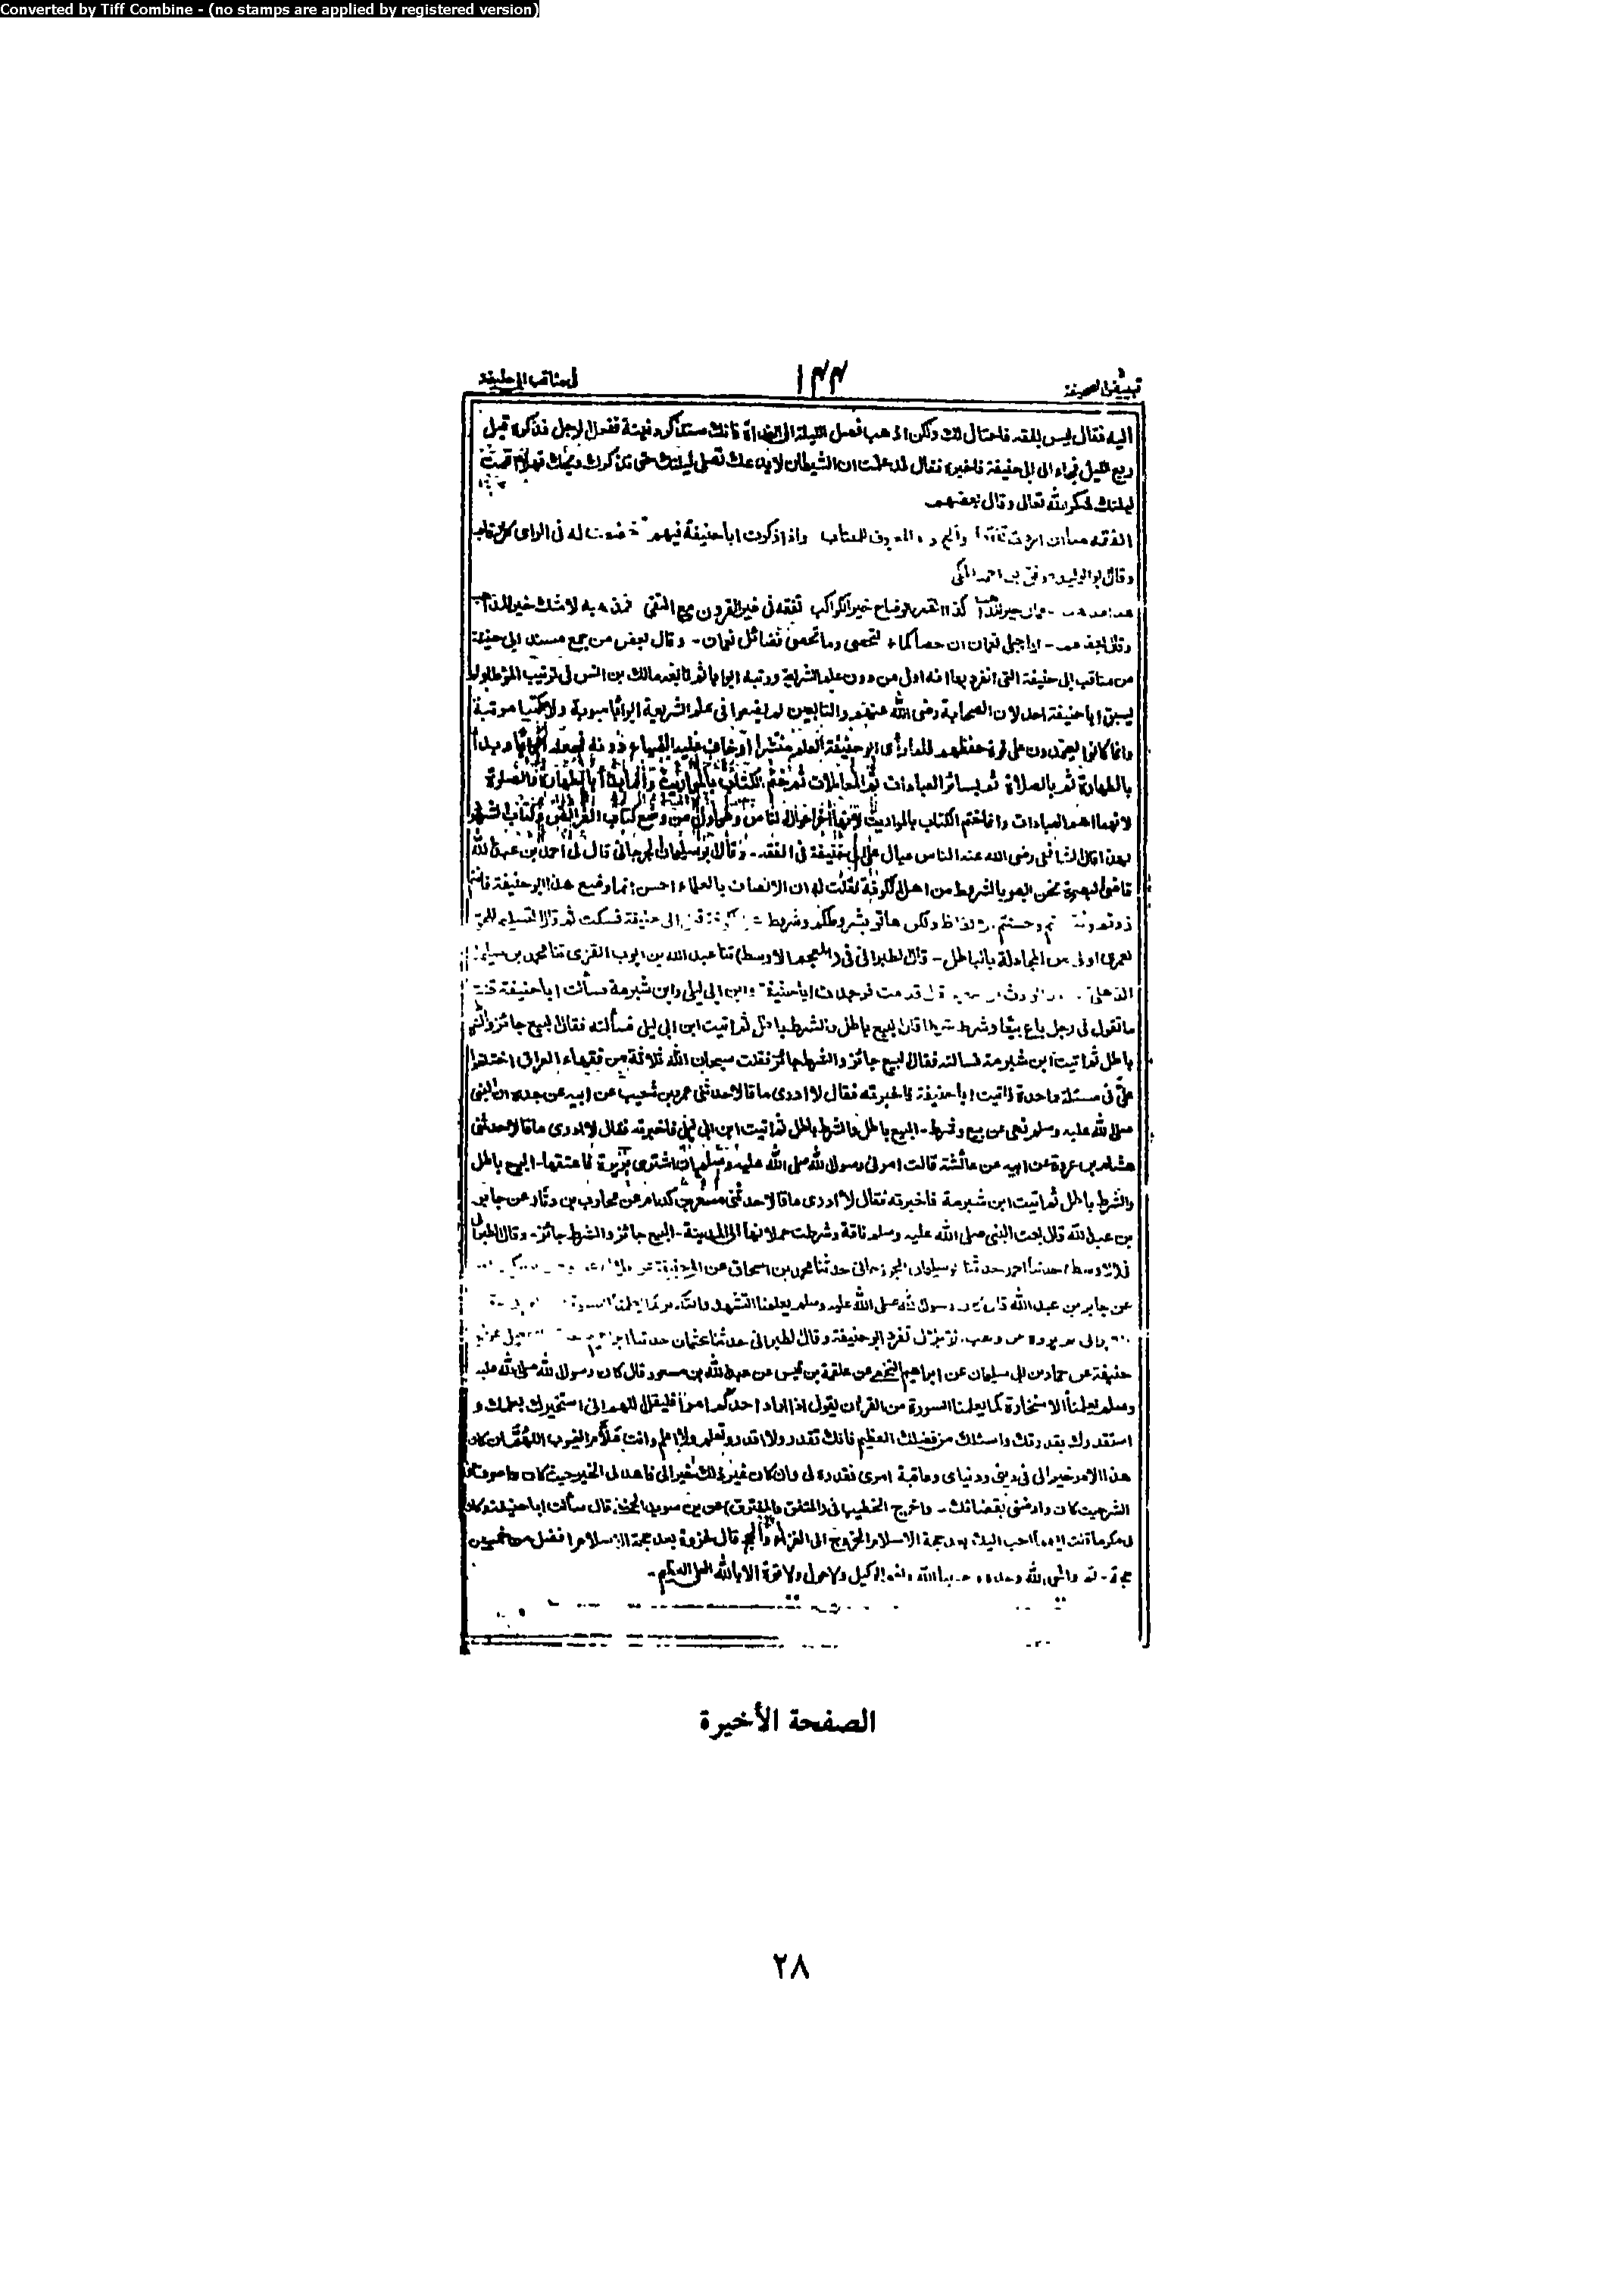 Converted by Tiff Combine - (no stamps are applied by registered version)
تبييض الصحيفة
١٣٣
في مناقب ابي حنيفة
اليه فقال ليس بفقه فاحتال لك ولكن اذهب فصل الليلة الى الغداة فانك ستذكره فجئته ففعل الرجل فذكره قبل
ربع الليل فجاء الى ابي حنيفة فاخبره فقال لقد علمت ان الشيطان لا يدعك تصلي ليلتك حتى تذكرك ويحك فهلا اتممت
ليلتك شكرا لله تعالى وقال بعضهم
الفقه واذا ذكرت ابا حنيفة فيهم خضعت له في الراي كل رقاب
وقال ابو المؤيد موفق بن احمد المكي
كذا القمر الوضاح خير الكواكب تفقه في خير القرون مع التقى فمذهبه لاشك خير المذاهب
وقال بعضهم - ايا جبلي نعمان ان حصاكما لتحصى وما تحصى فضائل نعمان - وقال بعض من جمع مسند ابي حنيفة
من مناقب ابي حنيفة التي انفرد بها انه اول من دون علم الشريعة ورتبه ابوابا ثم تابعه مالك بن انس في ترتيب المؤطا ولم
يسبق ابا حنيفة احد لان الصحابة رضى الله عنهم والتابعين لم يضعوا في علم الشريعة ابوابا مبوبة ولا كتبا مرتبة
وانما كانوا يعتمدون على قوة حفظهم فلما رأى ابو حنيفة العلم منتشرا وخاف عليه الضياع دونه فجعله ابوابا وبدأ
بالطهارة ثم بالصلاة ثم بسائر العبادات ثم المعاملات ثم ختم الكتاب بالمواريث وانما بدأ بالطهارة والصلوة
لانهما اهم العبادات وانما ختم الكتاب بالمواريث لانها آخر احوال الناس وهو اول من وضع كتاب الفرائض وكتاب الشروط
ولهذا قال الشافعي رضى الله عنه الناس عيال على ابي حنيفة في الفقه - وقال ابو سليمان الجرجاني قال لي احمد بن عبد الله
قاضي البصرة نحن ابصر بالشروط من اهل الكوفة فقلت له ان الانصاف بالعلماء احسن انما وضع هذا ابو حنيفة فانتم
زدتم ونقصتم وحسنتم الالفاظ ولكن هاتوا بشروطكم وشروط اهل الكوفة قبل ابي حنيفة فسكت ثم قال التسليم للحق
اولى من المجادلة بالباطل - وقال الطبراني في (المعجم الاوسط) ثنا عبد الله بن ايوب القربى ثنا محمد بن سليمان
الذهلي قال قدمت فوجدت ابا حنيفة وابن ابي ليلى وابن شبرمة فسألت ابا حنيفة فقلت
ما تقول في رجل باع بيعا وشرط شرطا قال البيع باطل والشرط باطل ثم اتيت ابن ابي ليلى فسألته فقال البيع جائز والشرط
باطل ثم اتيت ابن شبرمة فسالته فقال البيع جائز والشرط جائز فقلت سبحان الله ثلاثة من فقهاء العراق اختلفوا
علىّ في مسئلة واحدة فاتيت ابا حنيفة فاخبرته فقال لا ادرى ما قالا حدثني عمرو بن شعيب عن ابيه عن جده ان النبى
صلى الله عليه وسلم نهى عن بيع وشرط - البيع باطل والشرط باطل ثم اتيت ابن ابي ليلى فاخبرته فقال لا ادرى ما قالا حدثني
هشام بن عروة عن ابيه عن عائشة قالت امرني رسول الله صلى الله عليه وسلم ان اشترى بريرة فاعتقها - البيع جائز
والشرط باطل ثم اتيت ابن شبرمة فاخبرته فقال لا ادرى ما قالا حدثني مسعر بن كدام عن محارب بن دثار عن جابر
بن عبد الله قال بعت النبى صلى الله عليه وسلم ناقة وشرطت حملانها الى المدينة - البيع جائز والشرط جائز - وقال الطبراني
في الاوسط حدثنا احمد حدثنا ابو سليمان الجوزجاني حدثنا محمد بن اسحاق عن ابي حنيفة
عن جابر بن عبد الله قال كان رسول الله صلى الله عليه وسلم يعلمنا التشهد والتكبير كما يعلمنا السورة
تفرد ابو حنيفة وقال الطبراني حدثنا عثمان حدثنا ابراهيم
حنيفة عن حماد بن ابي سليمان عن ابراهيم النخعي عن علقمة بن قيس عن عبد الله بن مسعود قال كان رسول الله صلى الله عليه
وسلم يعلمنا الاستخارة كما يعلمنا السورة من القرآن يقول اذا اراد احدكم امرا فليقل اللهم اني استخيرك بعلمك و
استقدرك بقدرتك واسئلك من فضلك العظيم فانك تقدر ولا اقدر وتعلم ولا اعلم وانت علام الغيوب اللهم ان كان
هذا الامر خيرا لى في دينى ودنياى وعاقبة امرى فقدره لى وان كان غير ذلك خيرا لى فاهدنى الخير حيث كان واصرف عنى
الشر حيث كان وارضنى بقضائك - واخرج الخطيب في (المتفق والمفترق) عن بن سويد الحنفى قال سألت ابا حنيفة وكان
لى مكرما قلت ايهما احب اليك بعد حجة الاسلام الخروج الى الغزاء أو الحج قال غزوة بعد حجة الاسلام افضل من خمسين
حجة - تم والحمد لله وحده وحسبنا الله ونعم الوكيل ولا حول ولا قوة الا بالله العلي العظيم -
الصفحة الأخيرة
٢٨